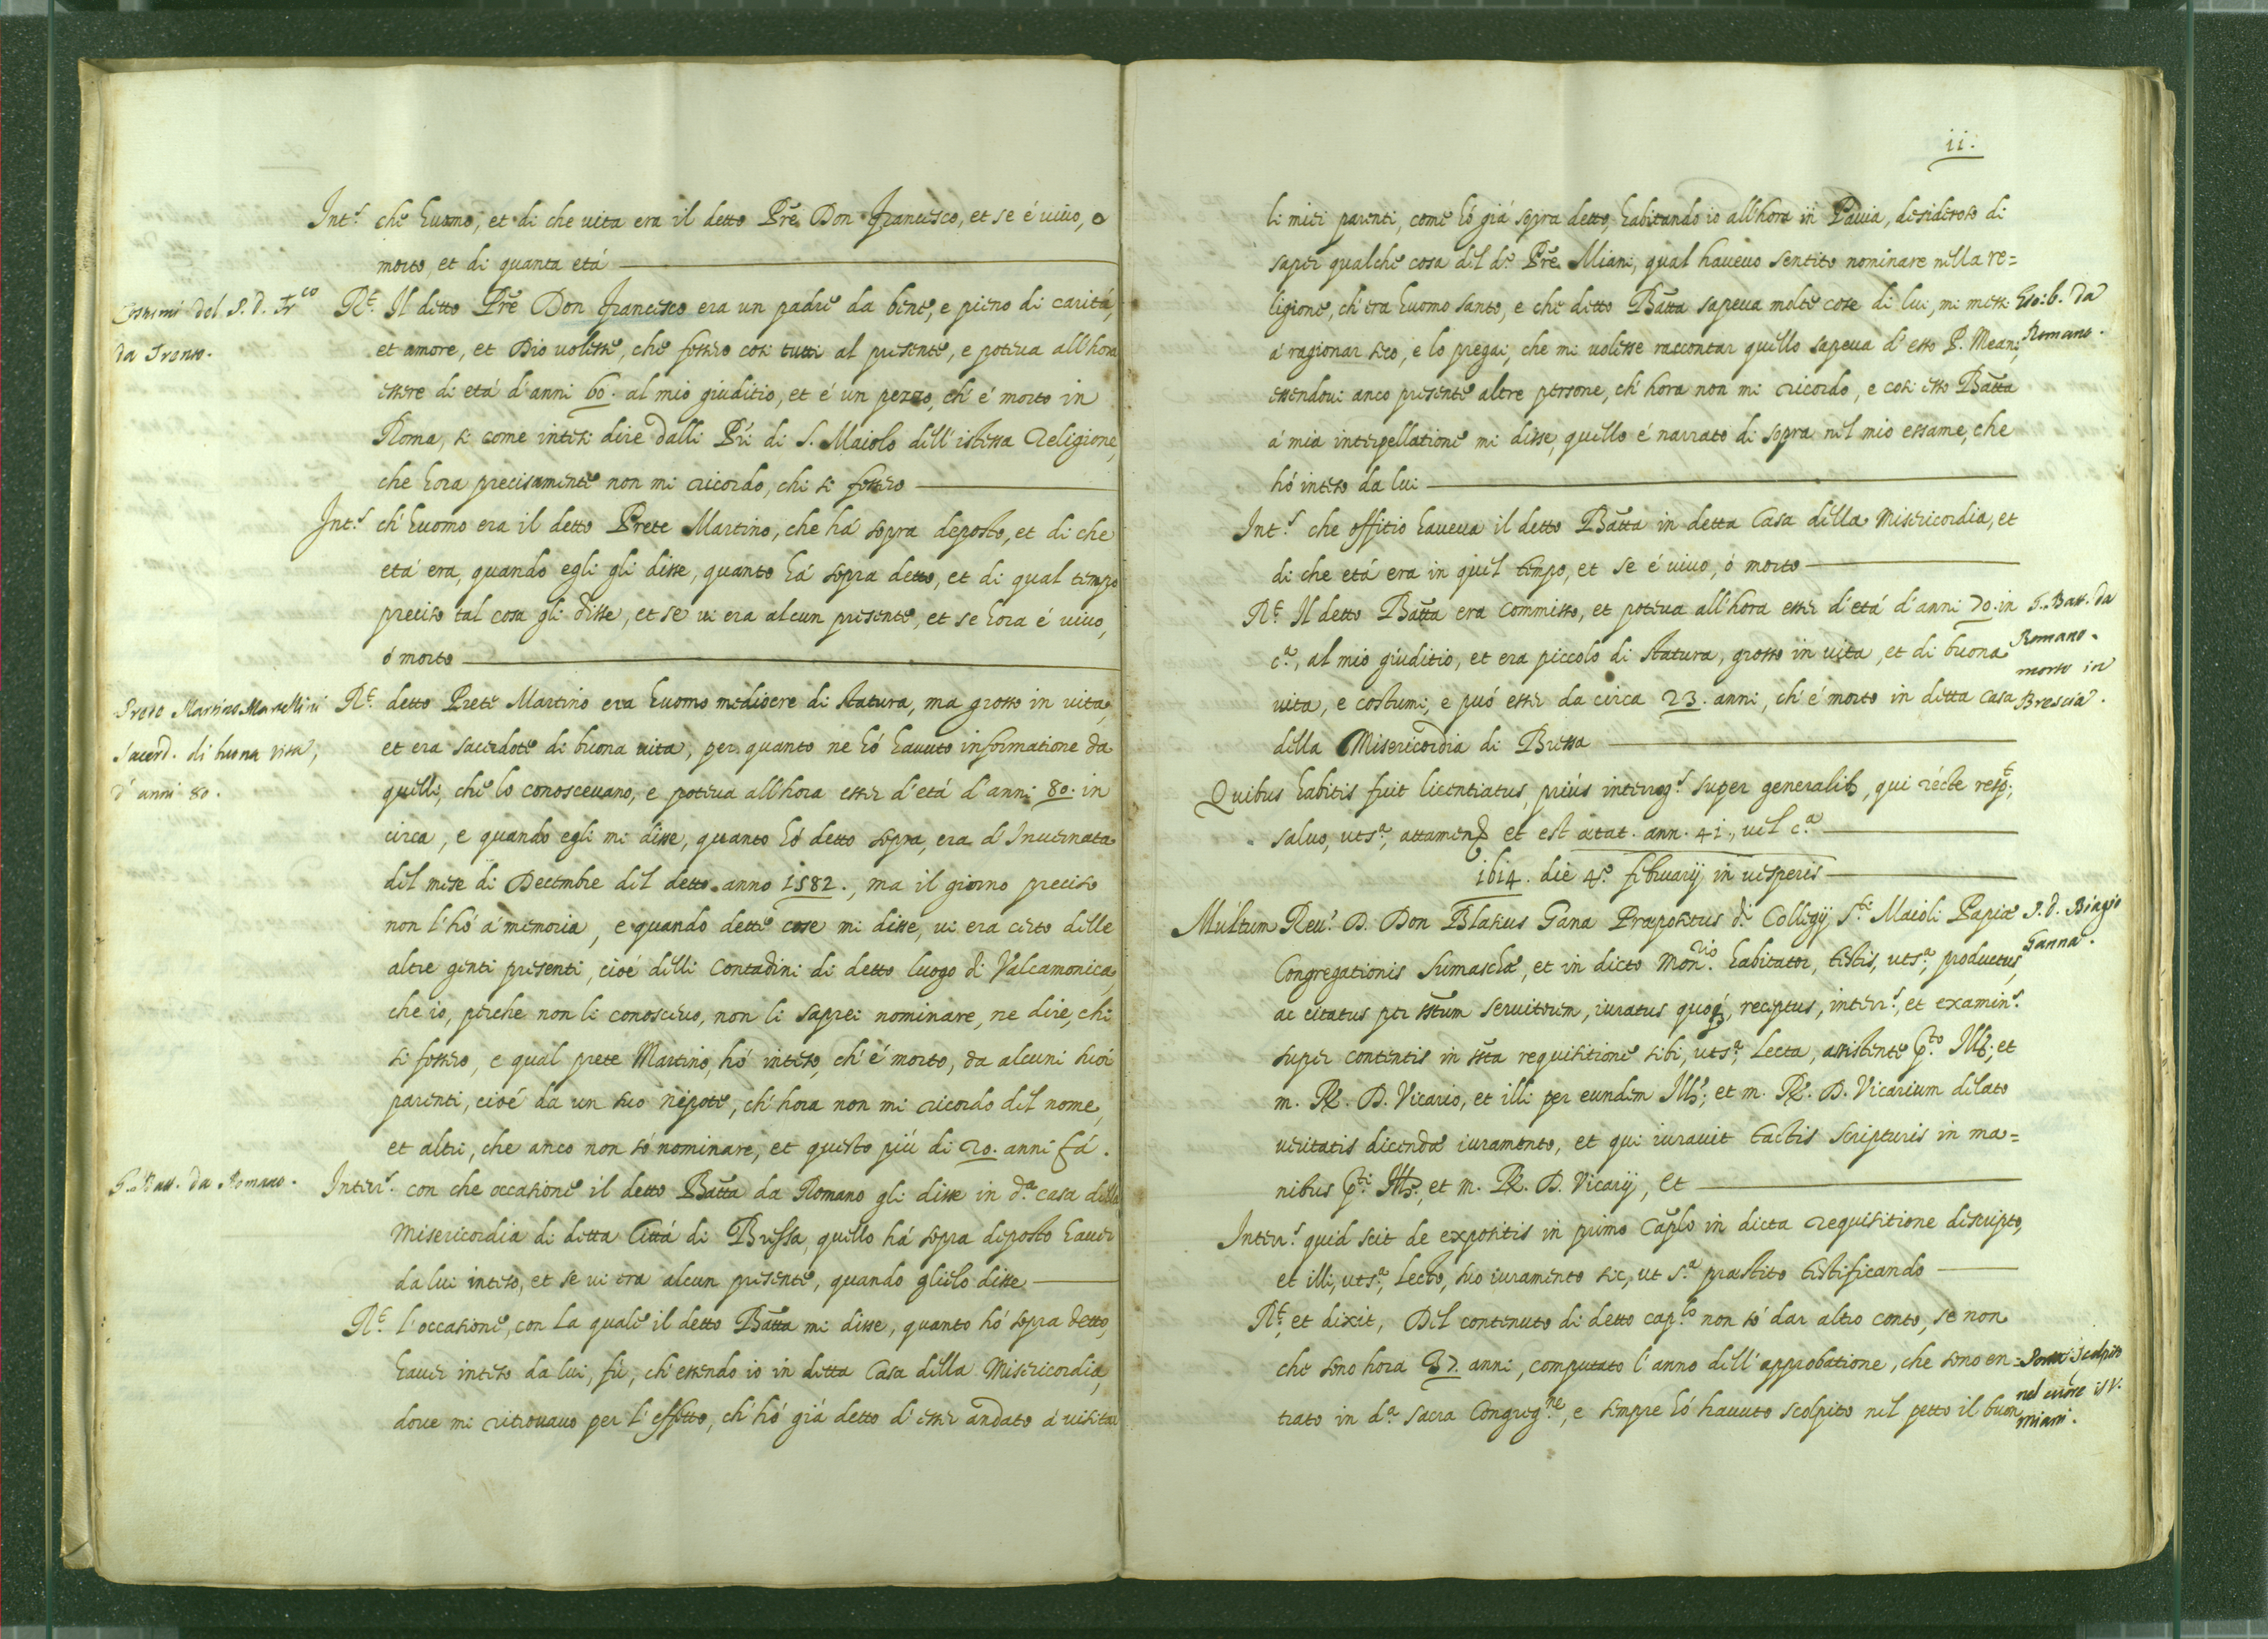 Int.s che huomo, et di che vita era il detto Prē Don Francesco, et se é vivo, o
morto, et di quanta etá
Essami del P. D. Frco
da Trento.
R.t Il detto Prē Don Francesco era un padre da bene, e pieno di caritá,
et amore, et Dio volesse, che fossero cosi tutti al presente, e poteva all'hora
essere di etá d'anni 60. al mio giuditio, et é un pezzo, ch' é morto in
Roma, si come intesi dire dalli Pri di S. Maiolo dell' istessa Religione,
che hora precisamente non mi ricordo, chi si fossero
Int.s ch' huomo era il detto Prete Martino, che há sopra deposto, et di che
etá era, quando egli gli disse, quanto há sopra detto, et di qual tempo
preciso tal cosa gli disse, et se vi era alcun presente, et se hora é vivo,
ó morto
Prete Martino Martellini
Sacerd. di buona vita,
d' anni 80.
R.t detto Prete Martino era huomo mediocre di statura, ma grosso in vita,
et era sacerdote di buona vita, per quanto ne hó havuto informatione da
quelli, che lo conoscevano, e poteva all'hora esser d'etá d'anni 80. in
circa, e quando egli mi disse, quanto hó detto sopra, era d' Invernata
del mese di Decembre del detto anno 1582., ma il giorno preciso
non l'hó a' memoria, e quando dette cose mi disse, vi era certo delle
altre genti presenti, cioé delli Contadini di detto luogo di Valcamonica,
che io, perche non li conoscevo, non li saprei nominare, ne dire, chi
si fossero, e qual prete Martino, hó inteso, ch' é morto, da alcuni suoi
parenti, cioé da un suo nepote, ch' hora non mi ricordo del nome,
et altri, che anco non só nominare, et questo piú di 20. anni fá.
G. Batt. da Romano.
Interr.s con che occasione il detto Batta da Romano gli disse in d.a casa della
Misericordia di detta Cittá di Bressa, quello há sopra deposto haver
da lui inteso, et se vi era alcun presente, quando glielo disse
R.t l'occasione, con la quale il detto Batta mi disse, quanto hó sopra detto,
haver inteso da lui, fú, ch' essendo io in detta Casa della Misericordia,
dove mi ritrovavo per l'effetto, ch' hó giá detto d' esser andato á visitar
ii.
li miei parenti, come hó giá sopra detto, habitando io all'hora in Pavia, desideroso di
saper qualche cosa del d.o Prē Miani, qual havevo sentito nominare nella re=
ligione, ch' era huomo santo, e che detto Batta sapeva molte cose di lui, mi messi
Gio: b. da
Romano.
á ragionar seco, e lo pregai, che mi volesse raccontar quello sapeva d' esso P. Meani,
essendovi anco presente altre persone, ch' hora non mi ricordo, e cosi esso Batta
á mia interpellatione mi disse, quello é narrato di sopra nel mio essame, che
hó inteso da lui
Int.s che offitio haveva il detto Batta in detta Casa della Misericordia, et
di che etá era in quel tempo, et se é vivo, ó morto
R.t Il detto Batta era Commisso, et poteva all'hora esser d'etá d'anni 70. in
G. Batt. da
Romano.
morto in
Brescia.
c.a, al mio giuditio, et era piccolo di statura, grosso in vita, et di buona
vita, e costumi, e puó esser da circa 23. anni, ch' é morto in detta casa
della Misericordia di Bressa
Quibus habitis fuit licentiatus, priús interrog.s super generalib, qui récte resp.t,
salvo, uts.a, attamen et est ætat. ann. 41., vel c.a
1614. die 4.o februarij in vesperis
Multum Rev.s D. Don Blasius Gana Præpositus d.i Collegij S.ti Maioli Papiæ
P. d. Biagio
Ganna.
Congregationis Sumaschæ, et in dicto Mon.rio habitator, testis, uts.a, productus,
ac citatus per istum servitorem, iuratus quoq, receptus, interr.s, et examin.s
super contentis in ista requisitione sibi, uts.a, lecta, assistente p.to Ill., et
m. R. D. Vicario, et illi per eundem Ill., et m. R. D. Vicarium delato
veritatis dicendæ iuramento, et qui iuravit tactis scripturis in ma=
nibus p.ti Ill., et m. R. D. Vicarij, et
Interr.s quid scit de expositis in primo Caplo in dicta requisitione descripto,
et illi, uts.a, lecto, suo iuramento sic, ut s.a præstito testificando
R.t, et dixit, Del contenuto di detto cap.lo non só dar altro conto, se non
che sono hora 37. anni, computato l'anno dell' approbatione, che sono en=
Porta scolpito
nel cuore il V.
Miani.
trato in d.a sacra Congreg.ne, e sempre hó havuto scolpito nel petto il buon